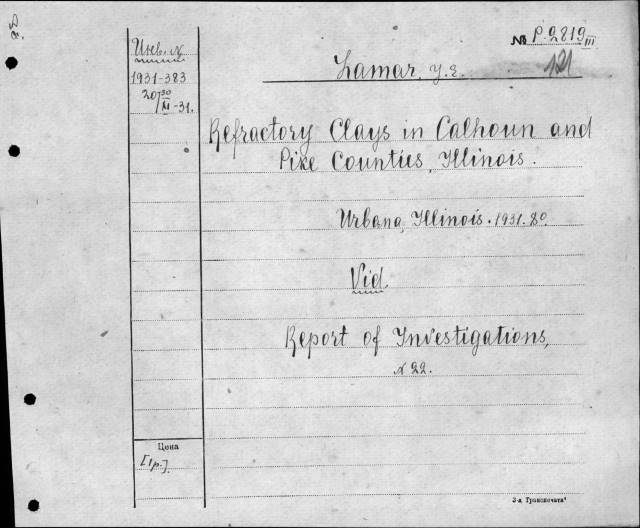 № P-2819 III
Инв. №
1931-383
20/30 III-31.
Lamar, J. E.
Refractory Clays in Calhoun and
Pike Counties, Illinois.
Urbana, Illinois. 1931. 8°.
Vid
Report of Investigations,
№ 22.
Цена
[1р.]
3-я Транспечать